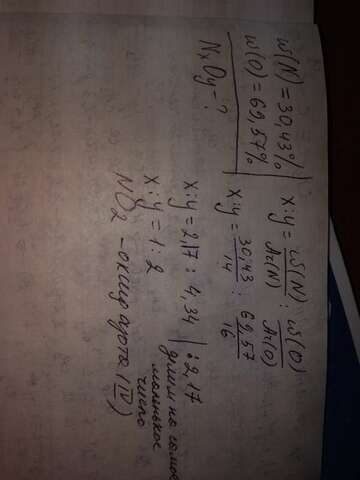 ω(N) = 30,43%
ω(O) = 69,57%
NxOy - ?
x:y = ω(N)/Ar(N) : ω(O)/Ar(O)
x:y = 30,43/14 : 69,57/16
x:y = 2,17 : 4,34 | : 2,17
делим на самое
маленькое
число
x:y = 1:2
NO2 - оксид азота (IV)